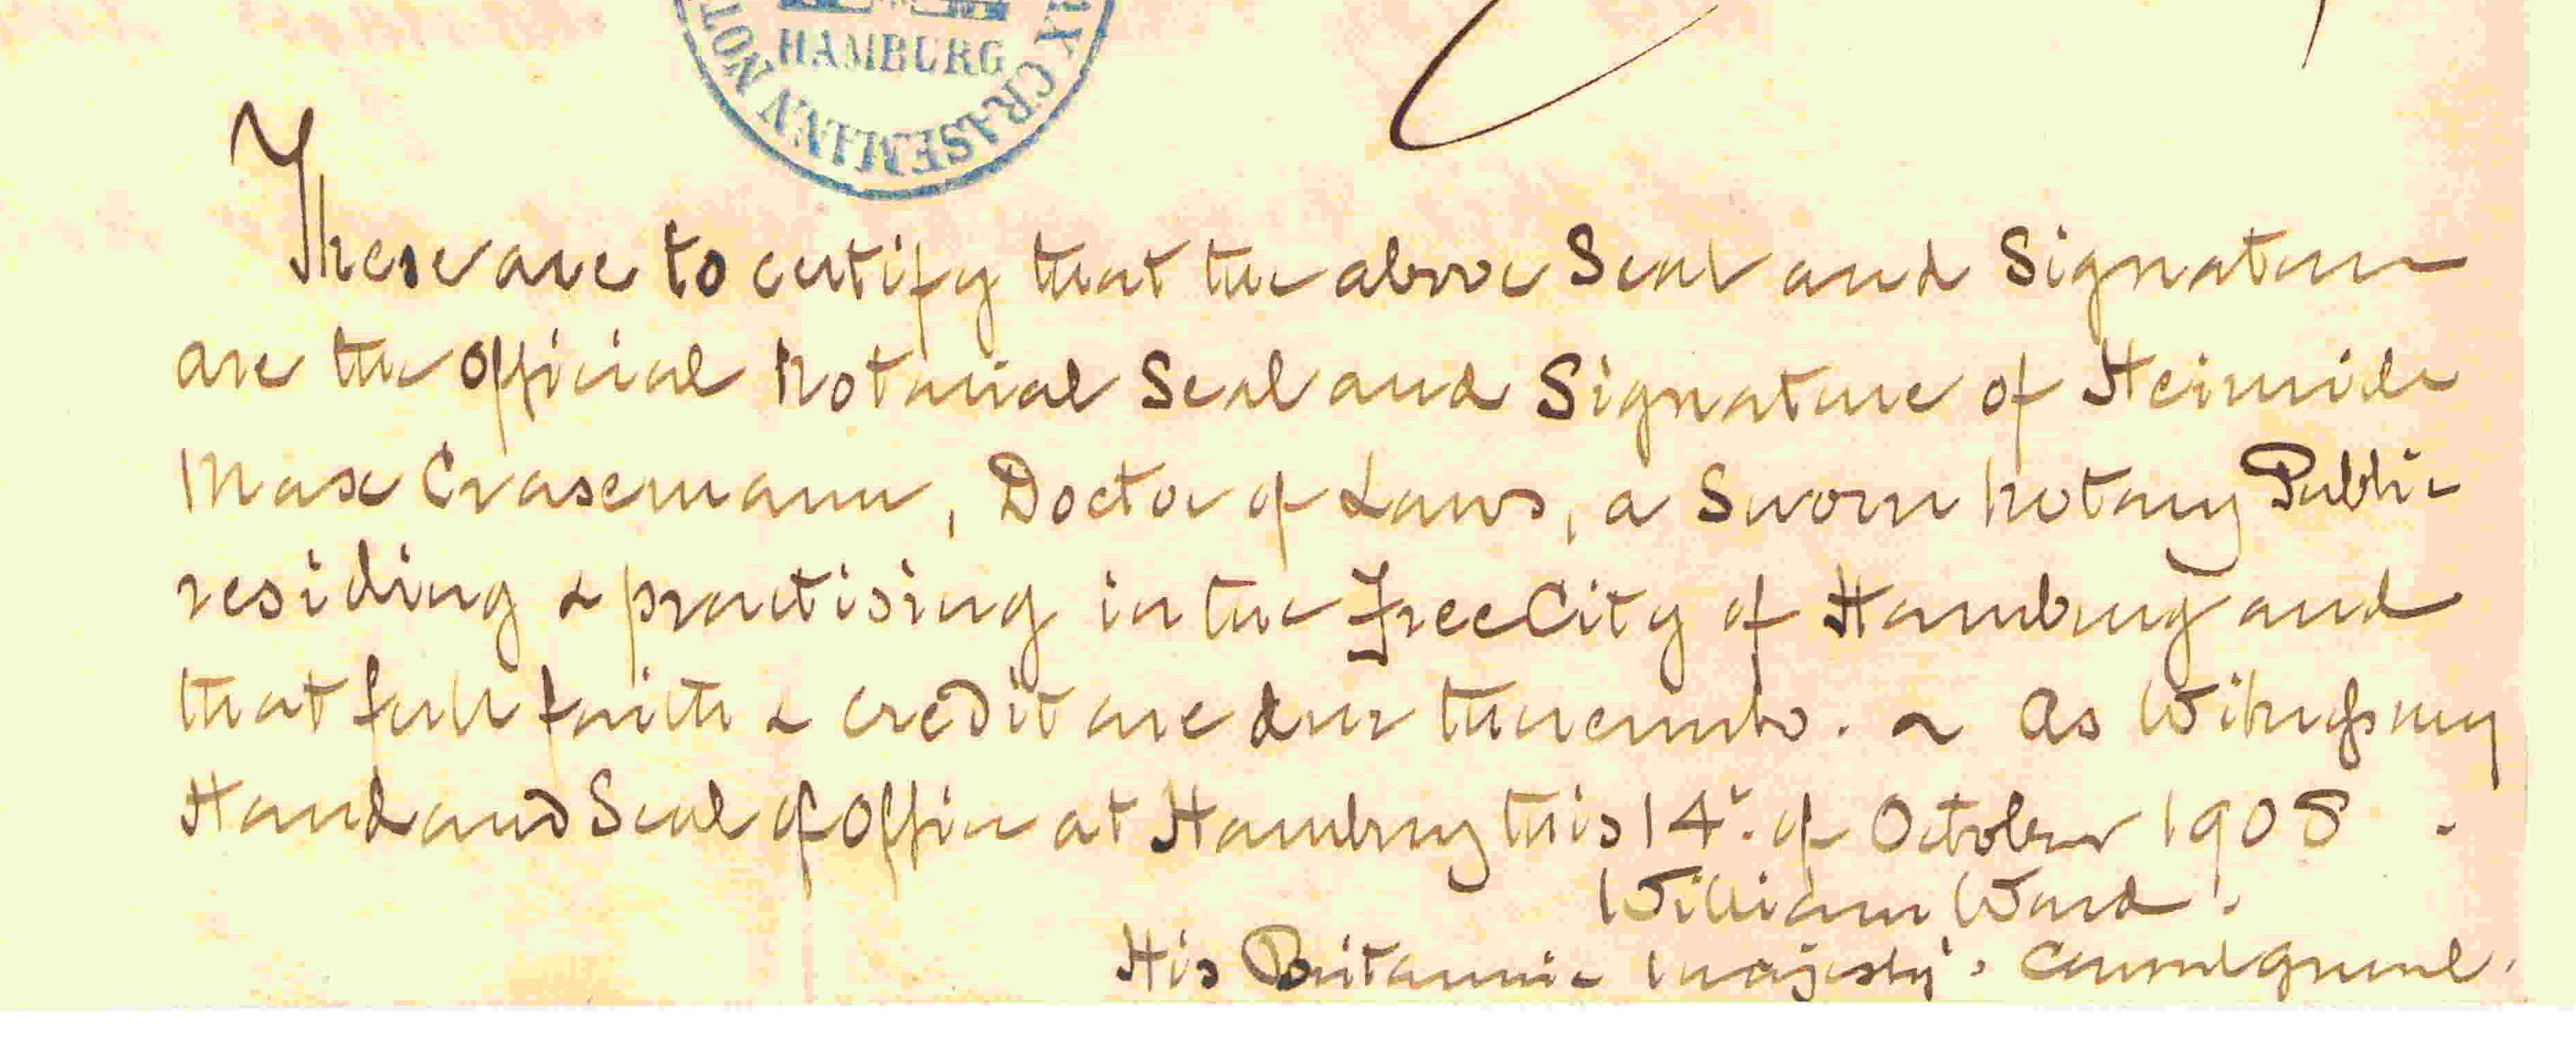 HAMBURG
CRASEMANN NOT
These are to certify that the above Seal and Signature
are the Official Notarial Seal and Signature of Heinrich
Max Crasemann, Doctor of Laws, a Sworn Notary Public
residing & practising in the Free City of Hamburg and
that full faith & credit are due thereunto. ~ As Witness my
Hand and Seal of Office at Hamburg this 14. of October 1908.
William Ward.
His Britannic Majesty's Consul General.